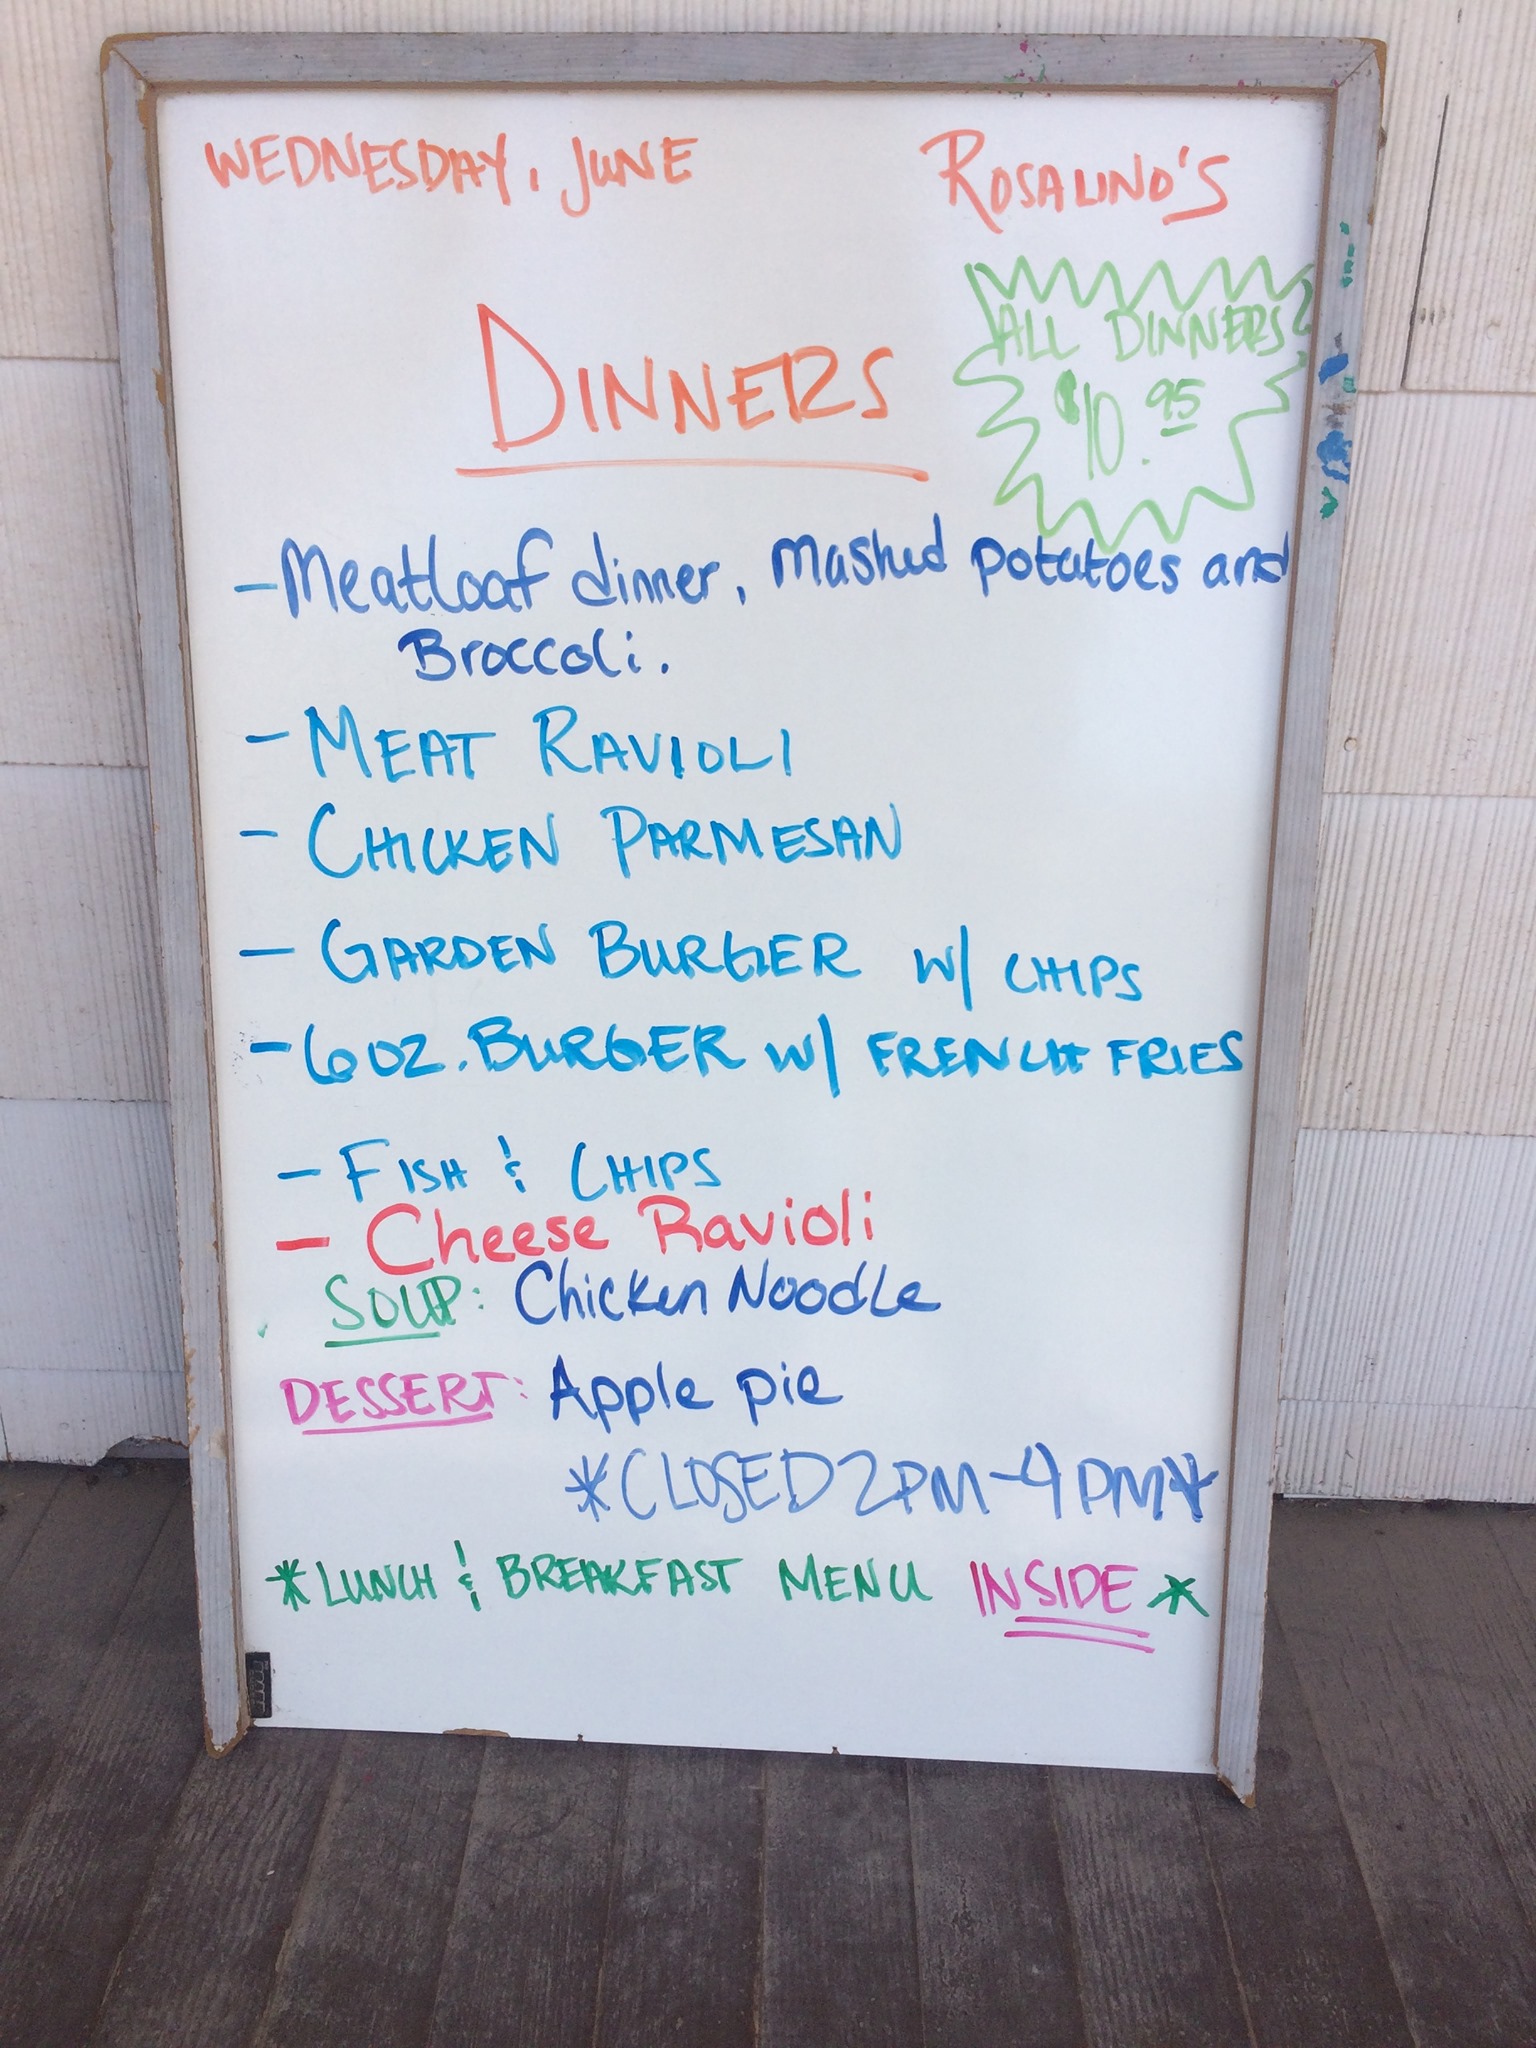 WEDNESDAY, JUNE
ROSALINO'S
ALL DINNERS
$10.95
DINNERS
- Meatloaf dinner, mashed potatoes and
Broccoli.
- MEAT RAVIOLI
- CHICKEN PARMESAN
- GARDEN BURGER W/ CHIPS
- 6 OZ. BURGER W/ FRENCH FRIES
- FISH & CHIPS
- Cheese Ravioli
SOUP: Chicken Noodle
DESSERT: Apple pie
*CLOSED 2PM-4PM*
*LUNCH & BREAKFAST MENU INSIDE*